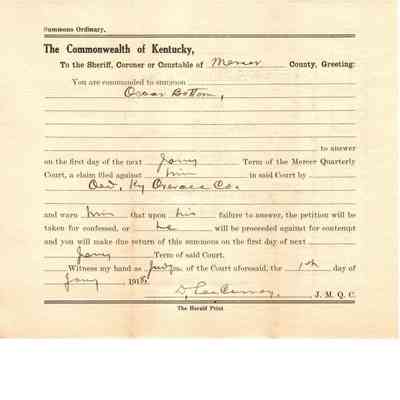 Summons Ordinary.
The Commonwealth of Kentucky,
To the Sheriff, Coroner or Constable of Mercer County, Greeting:
You are commanded to summon
Oscar Bottom,
to answer
on the first day of the next Jany Term of the Mercer Quarterly
Court, a claim filed against him in said Court by
Ky Overall Co.
and warn him that upon his failure to answer, the petition will be
taken for confessed, or he will be proceeded against for contempt
and you will make due return of this summons on the first day of next
Jany Term of said Court.
Witness my hand as Judge of the Court aforesaid, the 1st day of
Jany 191
J. M. Q. C.
The Herald Print